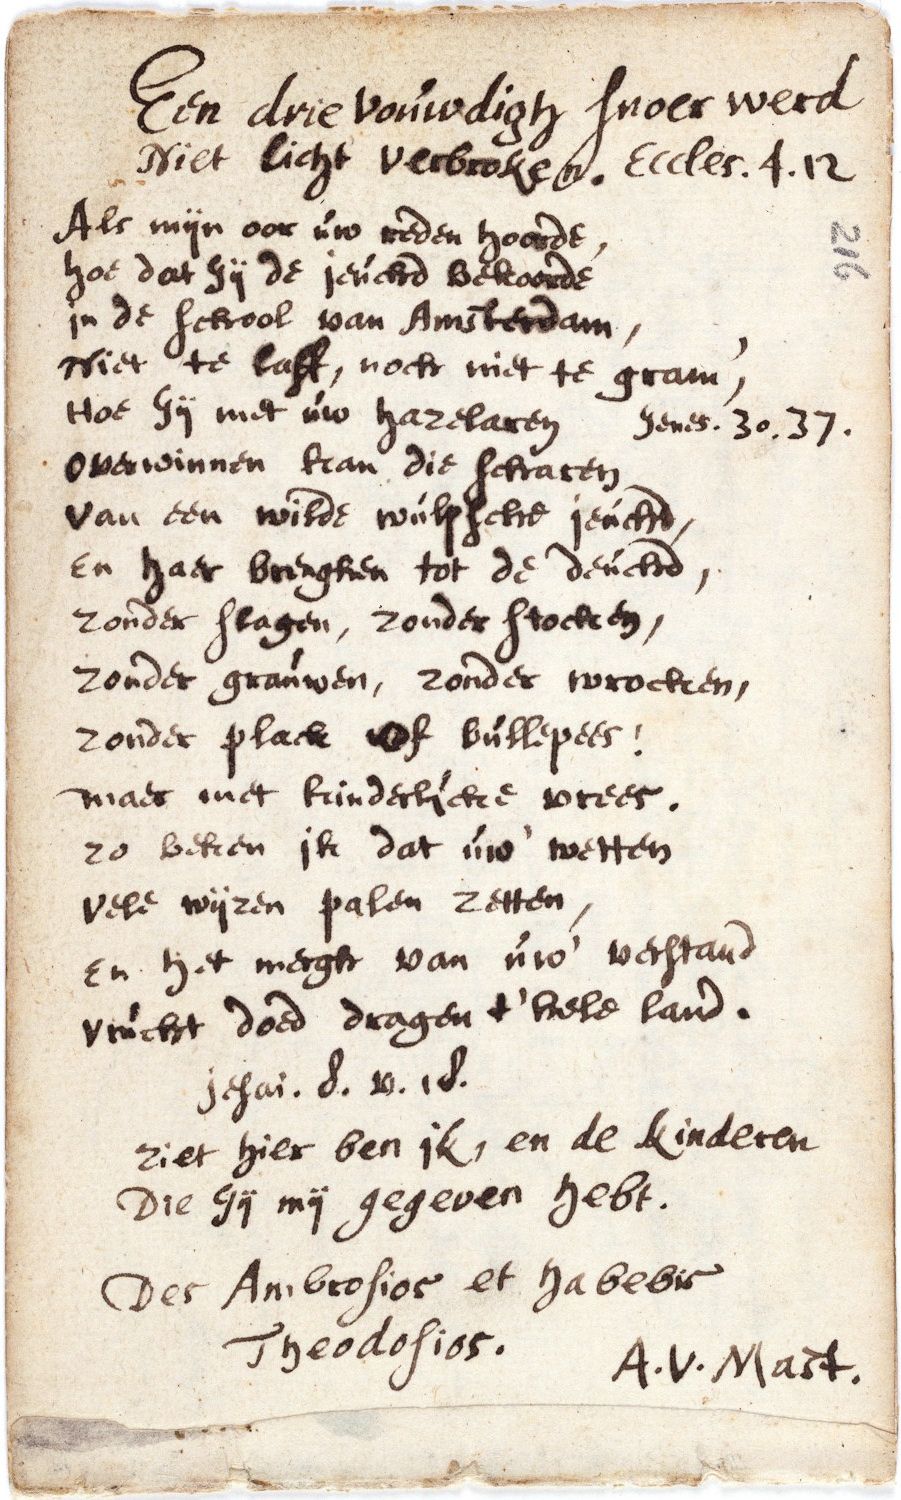 Een drievouwdigh snoer werd
Niet licht verbroken. Eccles. 4. 12
216
Als mijn oor úw reden hoorde,
hoe dat Gij de jeúchd bekoorde
in de school van Amsterdam,
Niet te laff, noch niet te gram,
Hoe Gij met úw hazelaren Genes. 30. 37.
overwinnen kan die scharen
van een wilde wúlpsche jeúchd,
en haer brenghen tot de deúchd,
zonder slagen, zonder stocken,
zonder graúwen, zonder wrocken,
zonder plack of búllepees!
maer met kinderlijcke vrees.
zo beken ik dat úw' wetten
vele wijzen palen zetten,
en het mergh van úw' verstand
vrúcht doed dragen t' hele land.
jesai. 8. v. 18.
ziet hier ben ik, en de kinderen
Die Gij mij gegeven hebt.
Des Ambrosios et habebis
Theodosios.
A. V. Mast.